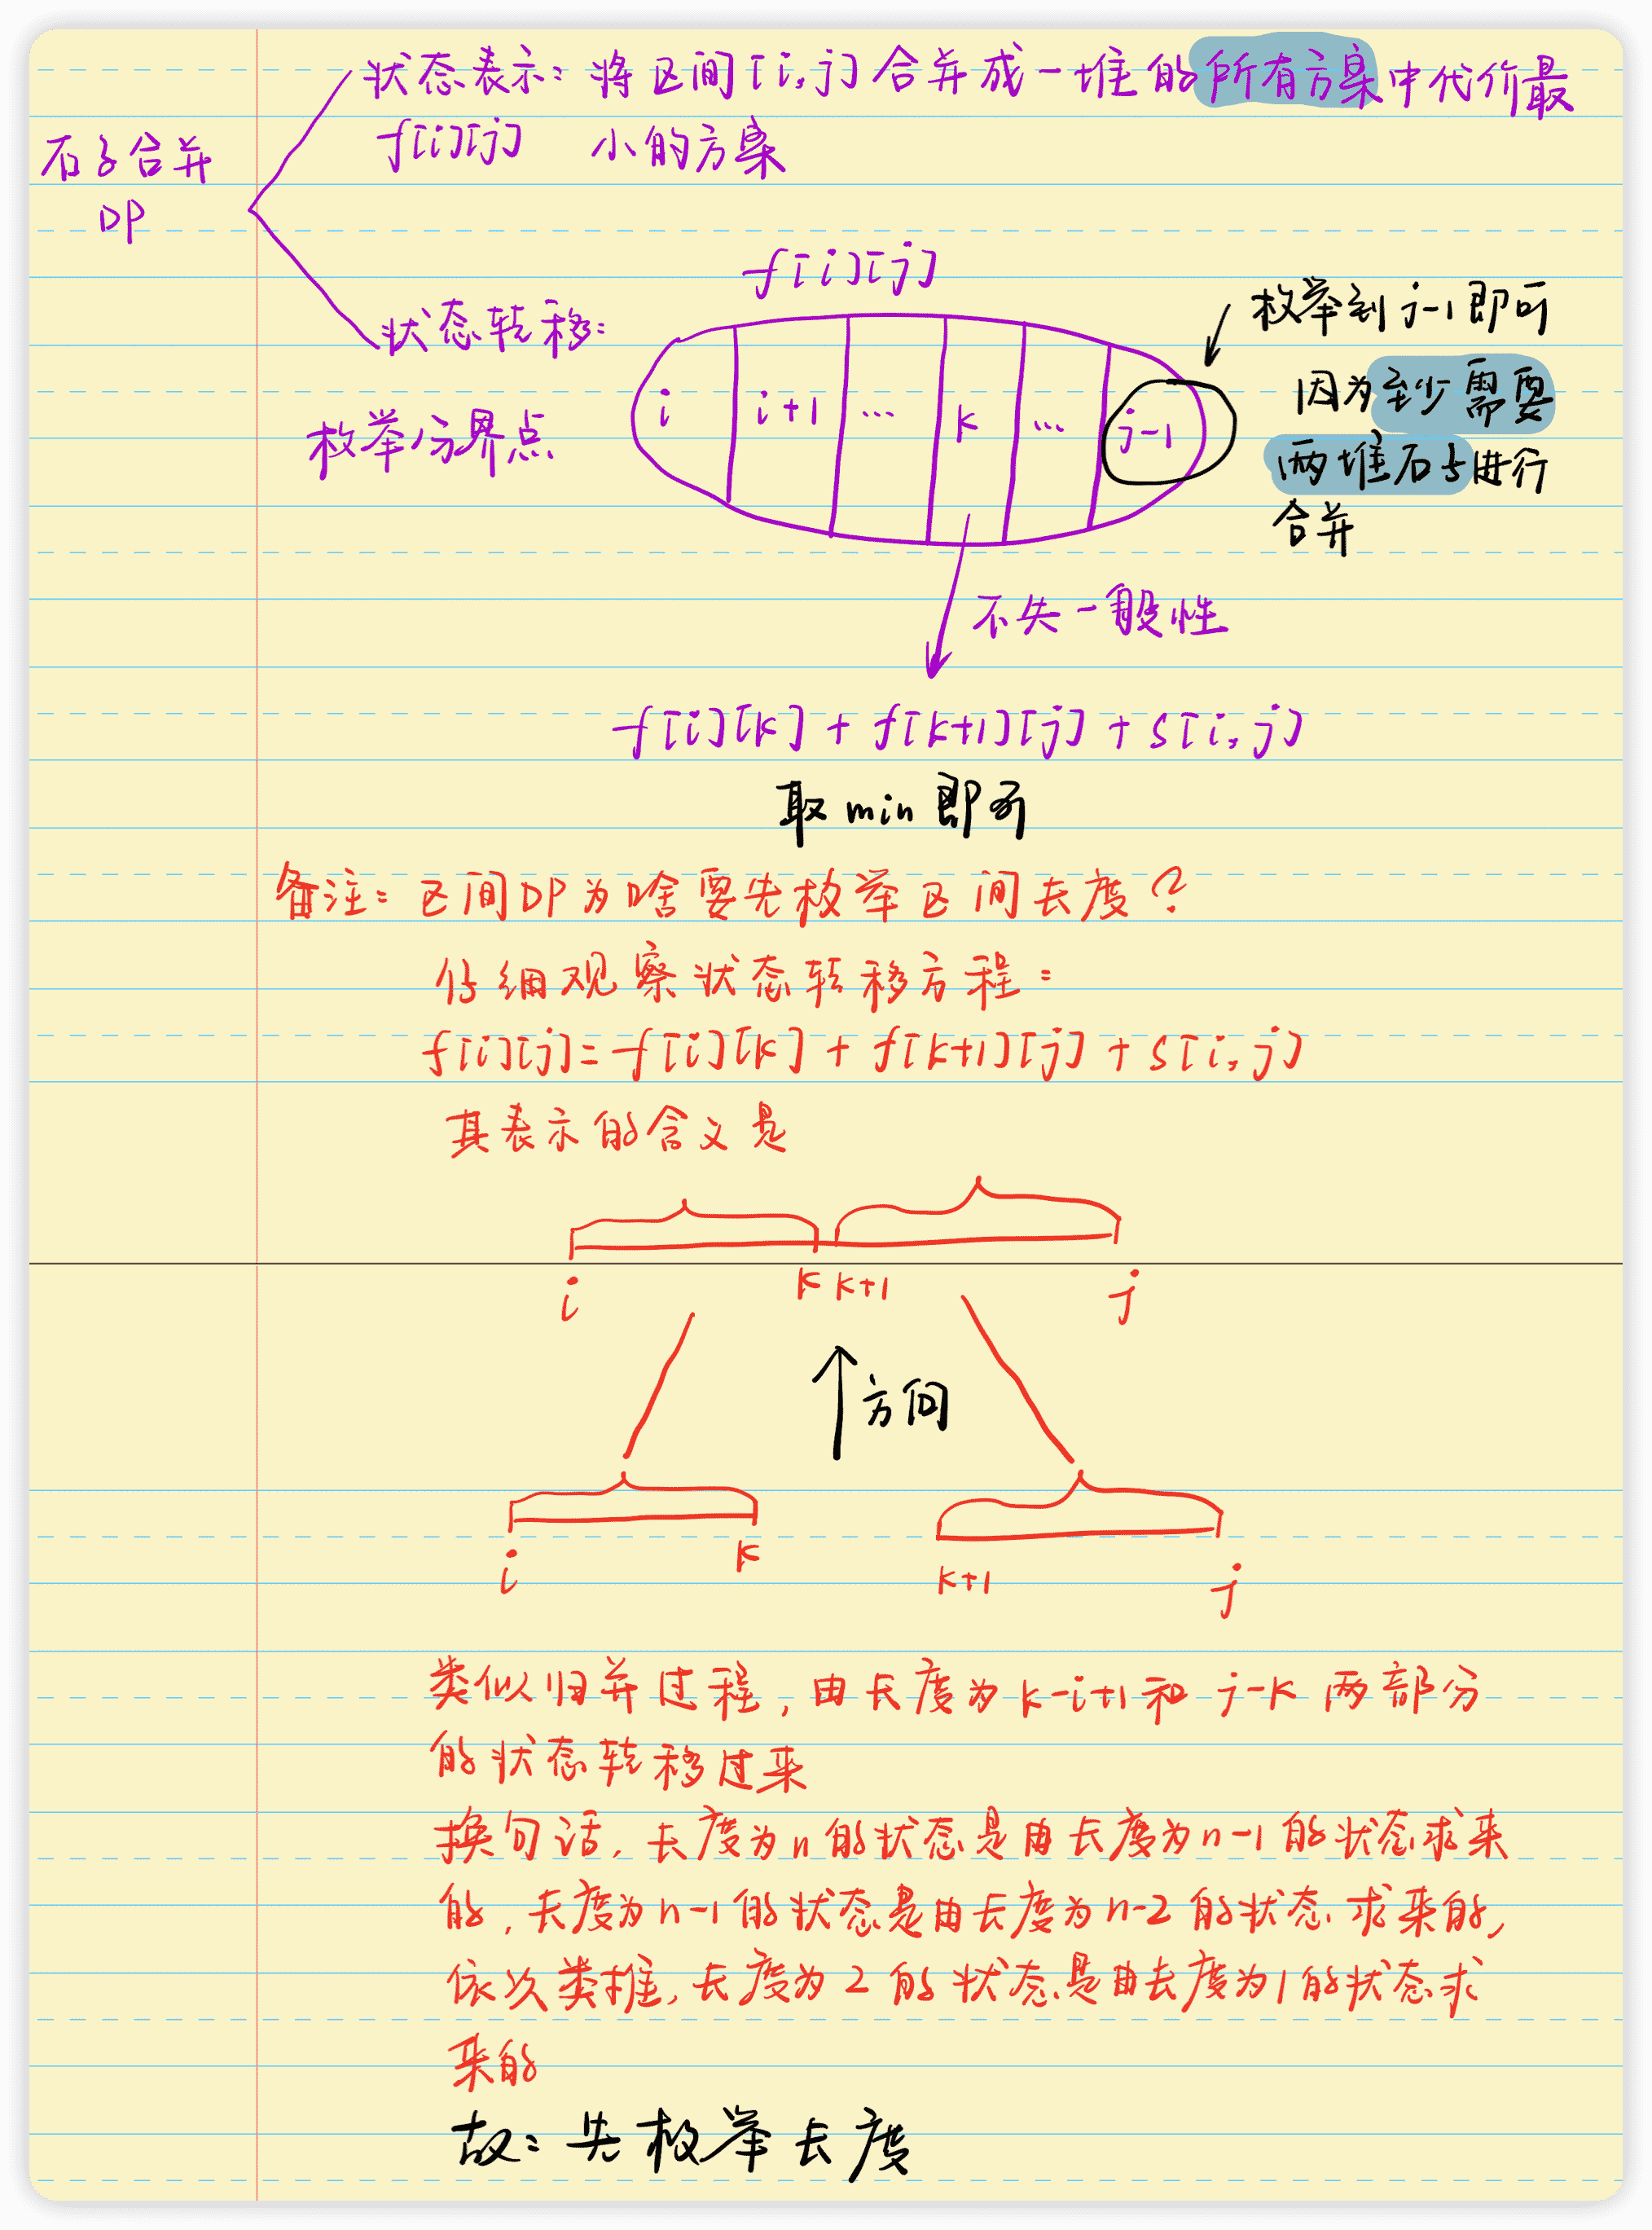 石子合并
DP
状态表示：将区间[i,j]合并成一堆的所有方案中代价最
f[i][j] 小的方案
状态转移：
枚举分界点
f[i][j]
i i+1 … k … j-1
枚举到j-1即可
因为至少需要
两堆石子进行
合并
不失一般性
f[i][k] + f[k+1][j] + s[i,j]
取min即可
备注：区间DP为啥要先枚举区间长度？
仔细观察状态转移方程：
f[i][j]=f[i][k] + f[k+1][j] + s[i,j]
其表示的含义是
i k k+1 j
方向
i k k+1 j
类似归并过程，由长度为k-i+1和 j-k 两部分
的状态转移过来
换句话，长度为n的状态是由长度为n-1的状态求来
的，长度为n-1的状态是由长度为n-2的状态求来的，
依次类推，长度为2的状态是由长度为1的状态求
来的
故：先枚举长度